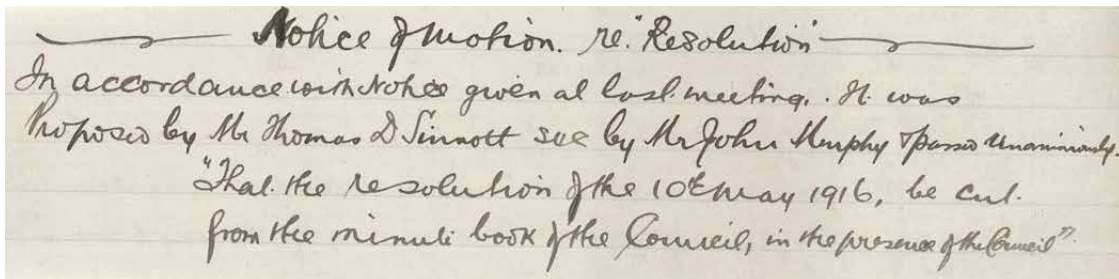 Notice of Motion. re. "Resolution"
In accordance with Notice given at last meeting. It was
Proposed by Mr Thomas D Sinnott sec by Mr John Murphy & passed Unanimously.
"That the resolution of the 10th May 1916, be cut
from the minute book of the Council, in the presence of the Council"